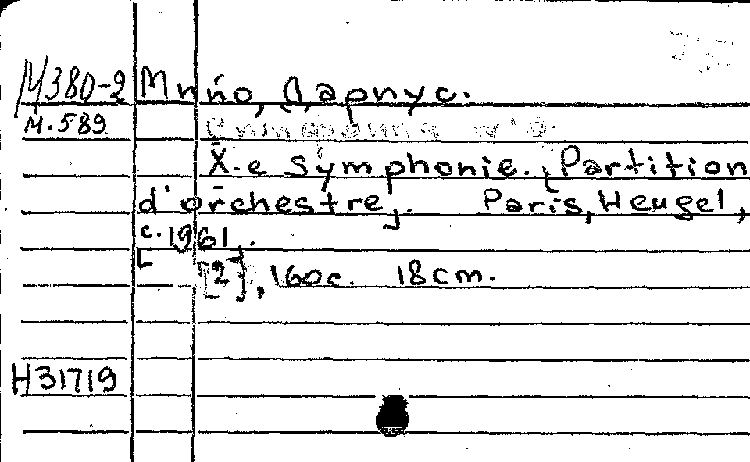 М380-2 Мийо, Дариус.
М.589
X-e Symphonie. [Partition
d'orchestre]. Paris, Heugel,
[c.1961].
[2], 160c. 18cm.
Н31719